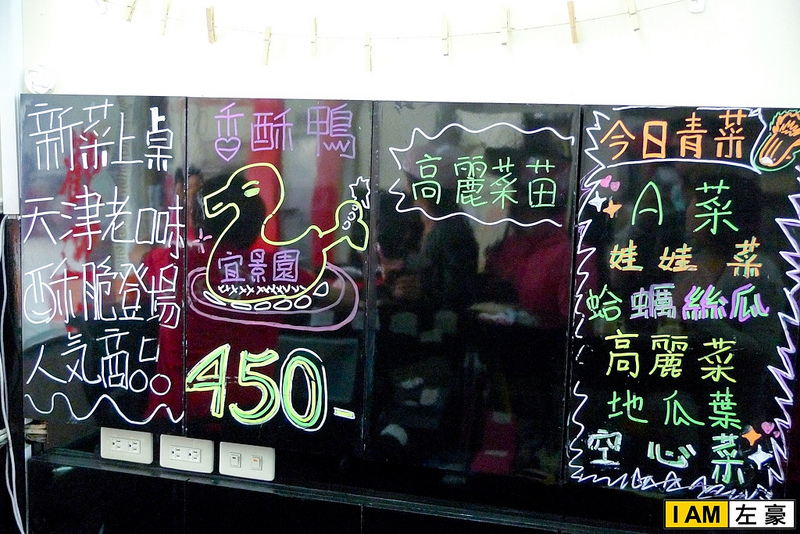 新菜上桌
天津老口味
酥脆登場
人氣商品
香酥鴨
宜景園
450-
高麗菜苗
今日青菜
A菜
娃娃菜
蛤蠣絲瓜
高麗菜
地瓜葉
空心菜
I AM 左豪